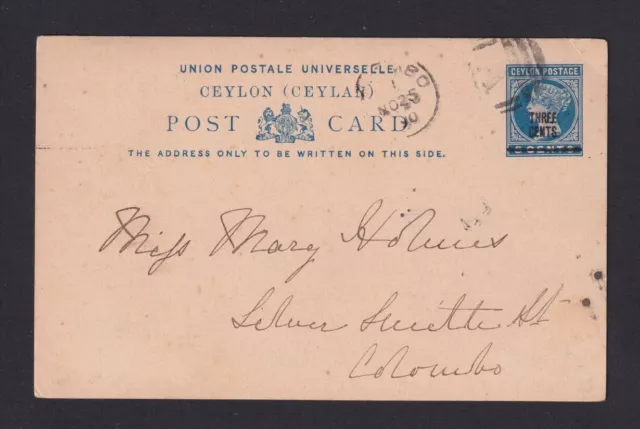 UNION POSTALE UNIVERSELLE
CEYLON (CEYLAN)
POST CARD
THE ADDRESS ONLY TO BE WRITTEN ON THIS SIDE.
NO 25
90
CEYLON POSTAGE
THREE
CENTS
5 CENTS
Miss Mary Holmes
Silver Smith St
Colombo